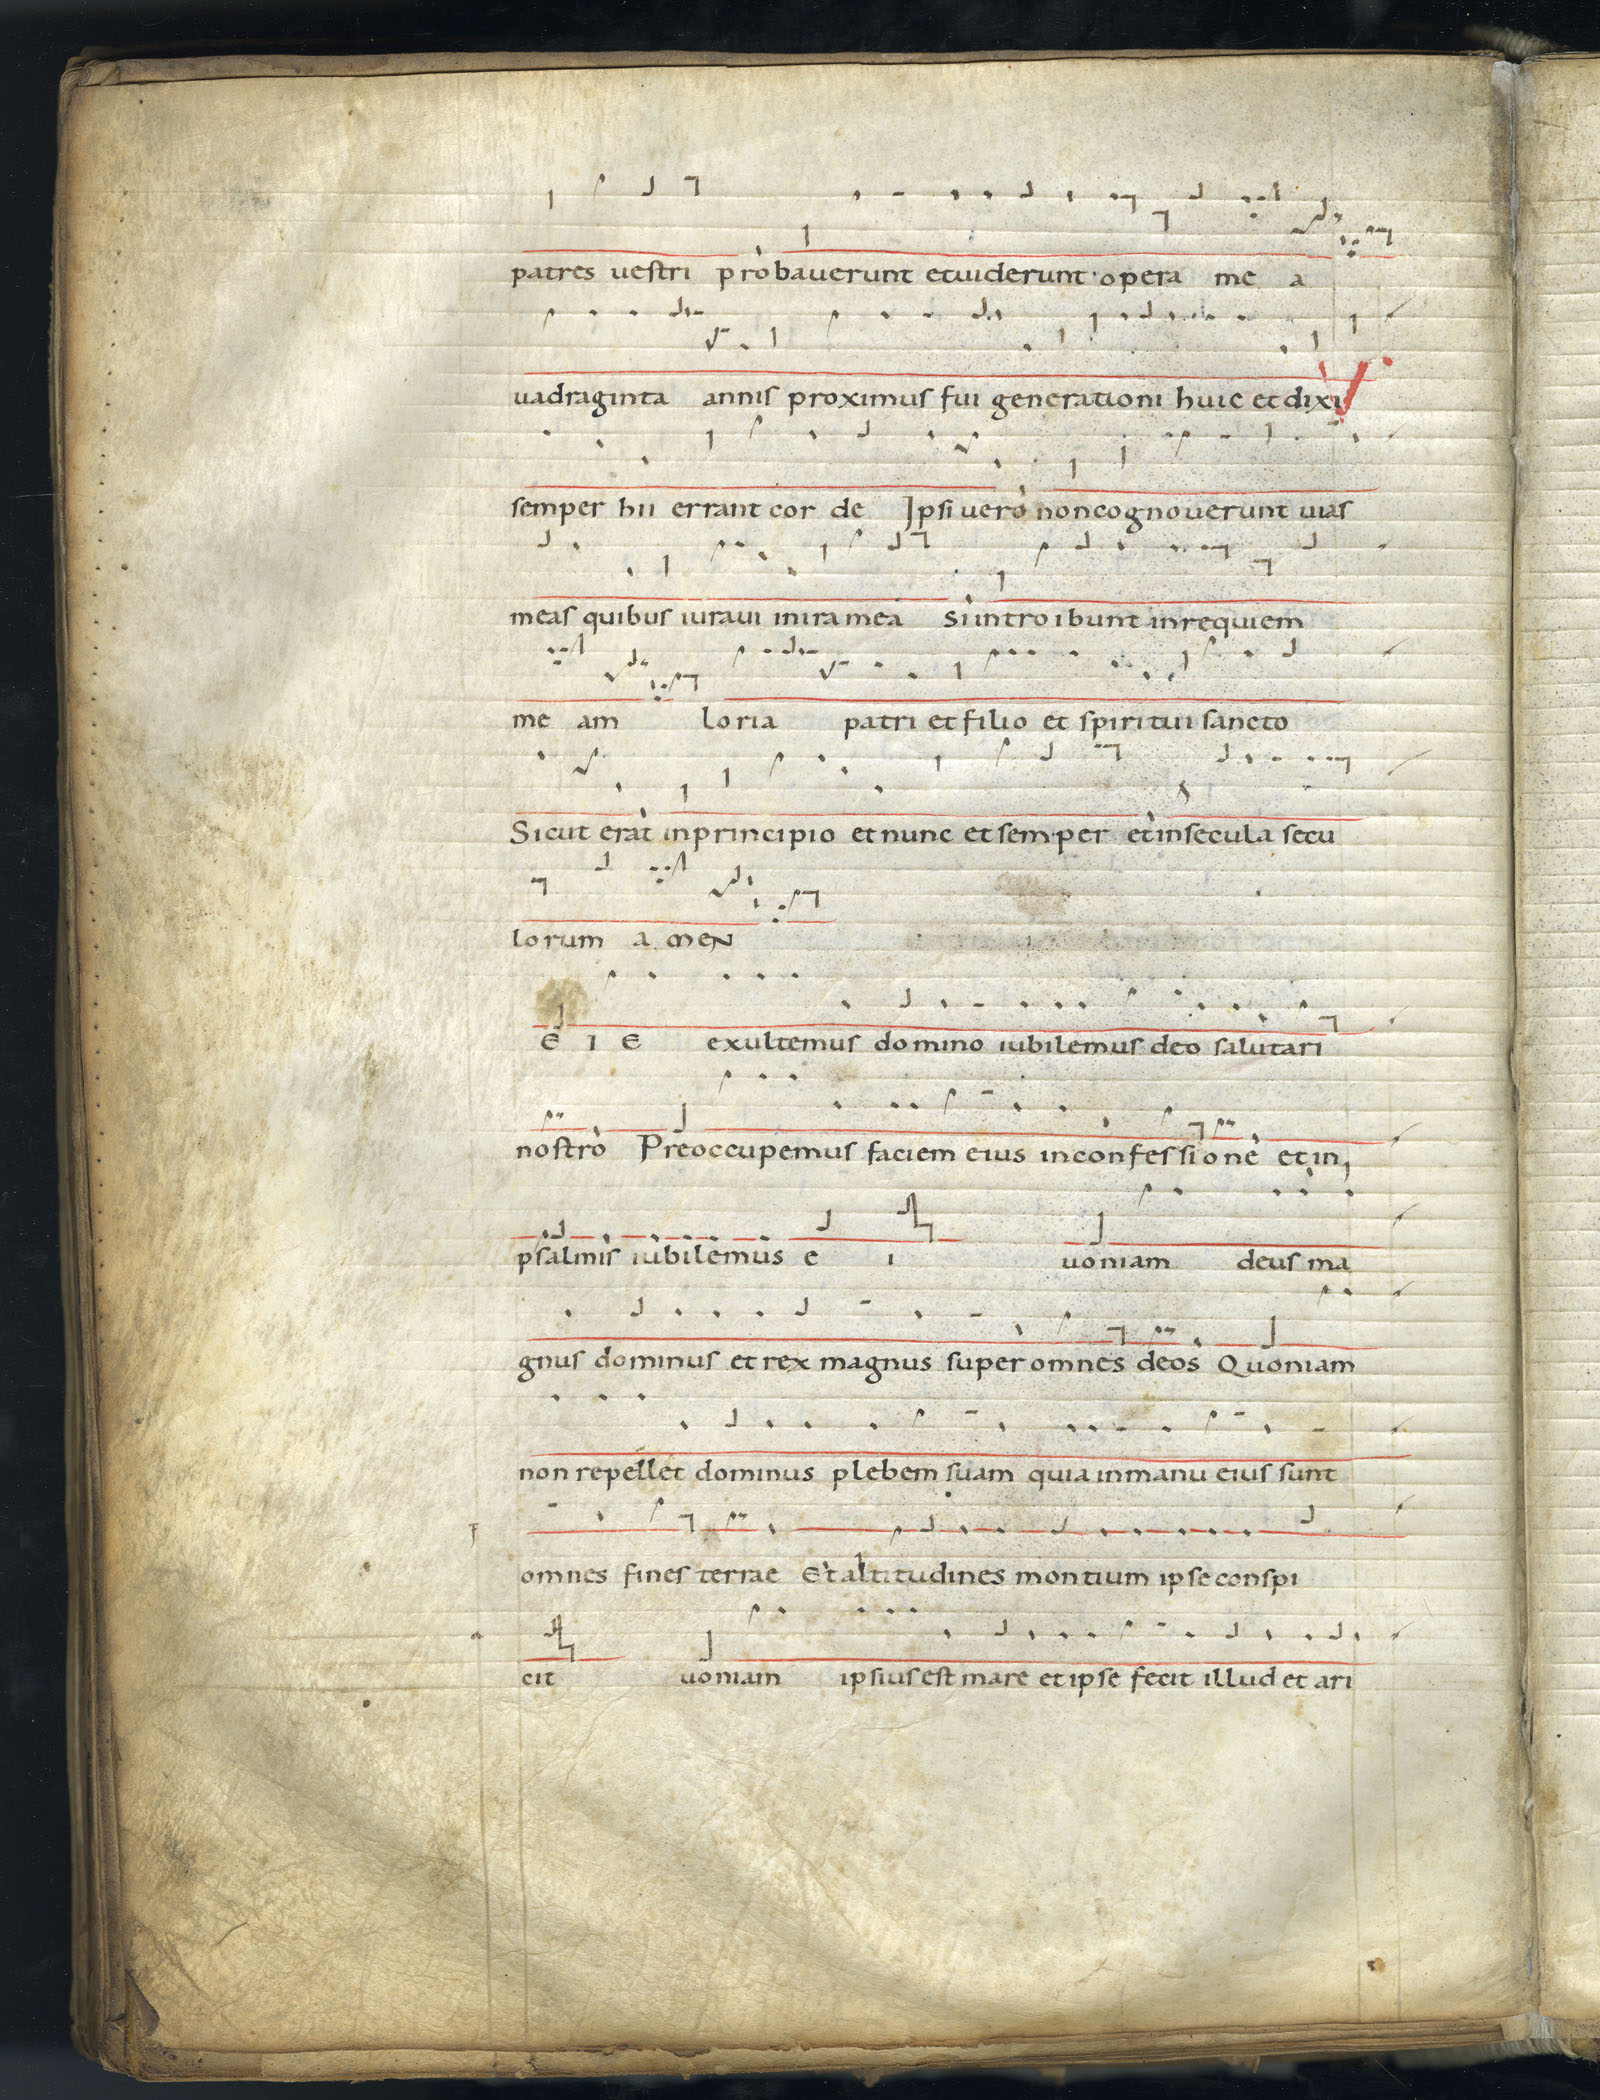 patres vestri probaverunt etviderunt opera me a
vadraginta annis proximus fui generationi huic et dixi
semper hii errant cor de Ipsi vero noncognoverunt vias
meas quibus iuravi inira mea Si introibunt inrequiem
me am loria patri et filio et spiritui sancto
Sicut erat inprincipio et nunc et semper et insecula secu
lorum a men
E I E exultemus domino iubilemus deo salutari
nostro Preoccupemus faciem eius inconfessione et in
psalmis iubilemus e i uoniam deus ma
gnus dominus et rex magnus super omnes deos Quoniam
non repellet dominus plebem suam quia inmanu eius sunt
omnes fines terrae Et altitudines montium ipse conspi
cit uoniam ipsius est mare et ipse fecit illud et ari